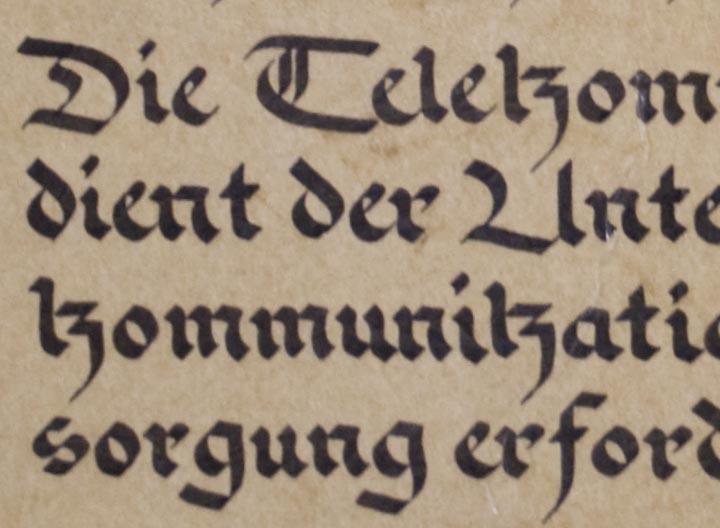 Die Telekom
dient der Unte
kommunikatio
sorgung erford